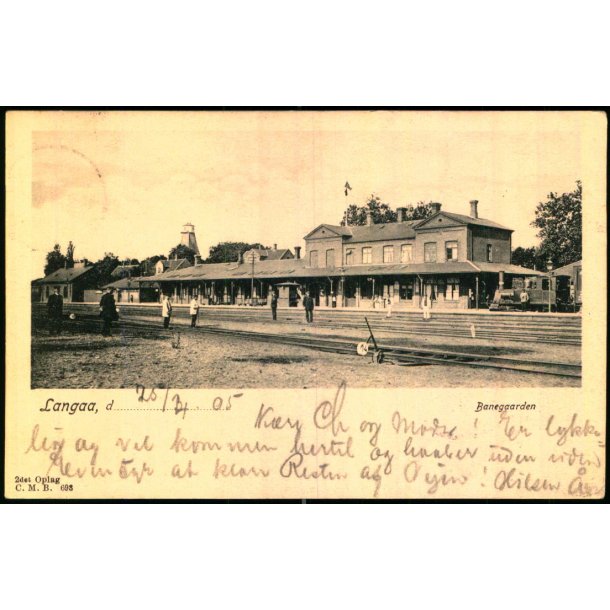 Langaa, d 25/4 05
Banegaarden
Kær Ch og Moder! Er lykke-
lig og vel kommen hertil og haaber uden videre
Eventyr at klare Resten af Vejen! Hilsen
2det Oplag
C. M. B. 693